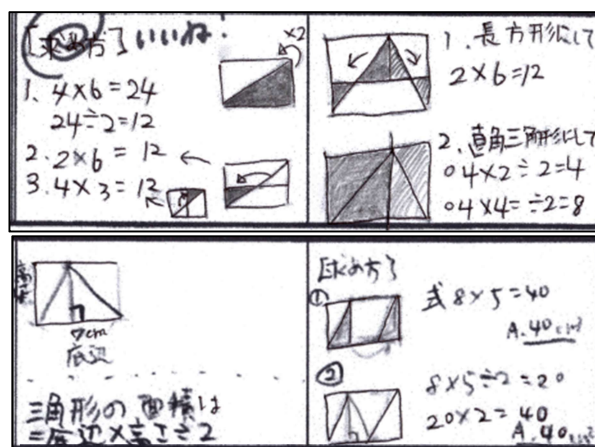 [求め方]いいね!
×2
1. 4×6=24
24÷2=12
2. 2×6=12 ←
3. 4×3=12
1. 長方形にして
2×6=12
2. 直角三角形にして
○4×2÷2=4
○4×4=÷2=8
7cm
底辺
三角形の面積は
=底辺×高さ÷2
[求め方]
① 式 8×5=40
A. 40cm²
② 8×5÷2=20
20×2=40
A. 40